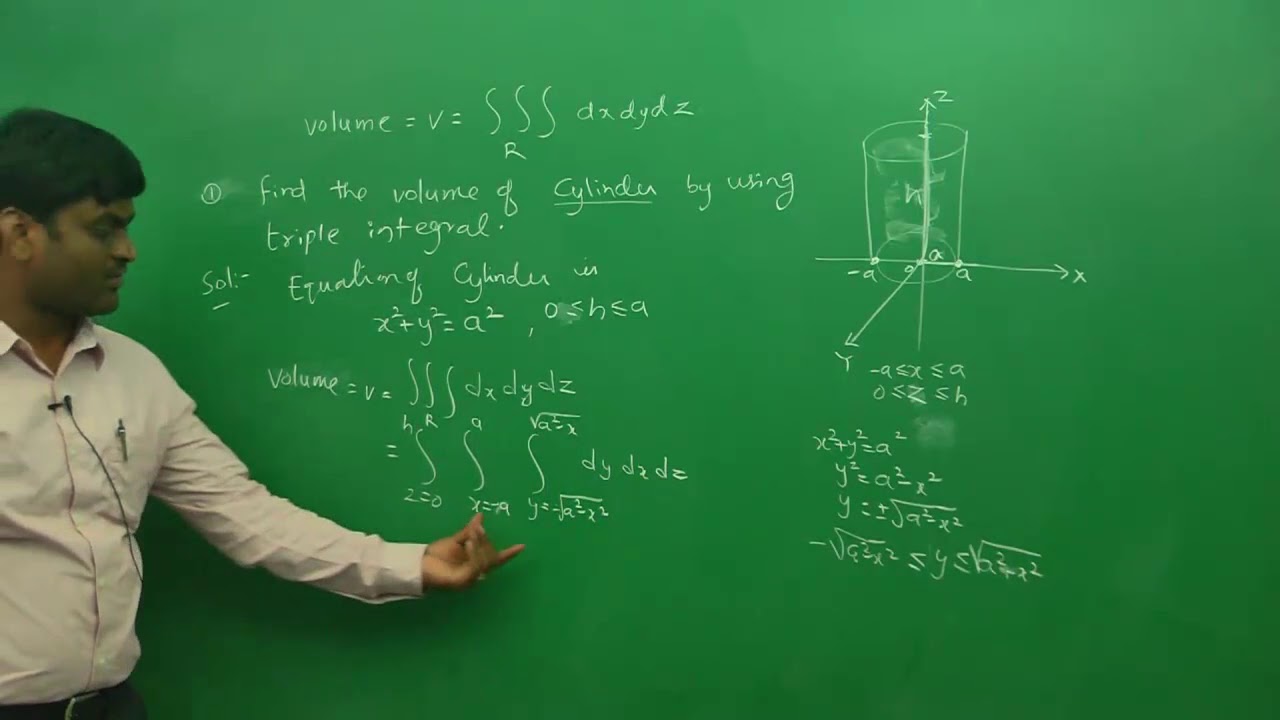 volume = V = ∫∫∫ dx dy dz
R
① Find the volume of Cylinder by using
triple integral.
Sol:- Equation of Cylinder is
x²+y²=a² , 0≤h≤a
Volume = V = ∫∫∫ dx dy dz
R
= ∫ ∫ ∫ dy dx dz
h a √a²-x
z=0 x=-a y=-√a²-x²
Z
h
a
-a o a X
Y
-a≤x≤a
0≤z≤h
x²+y²=a²
y²=a²-x²
y=±√a²-x²
-√a²-x² ≤ y ≤ √a²-x²